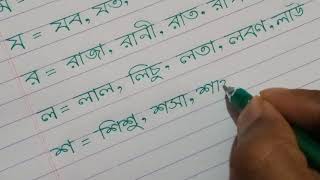 য = যব, যত,
র = রাজা, রানী, রাত,
ল = লাল, লিচু, লতা, লবণ, লাউ
শ = শিশু, শসা,